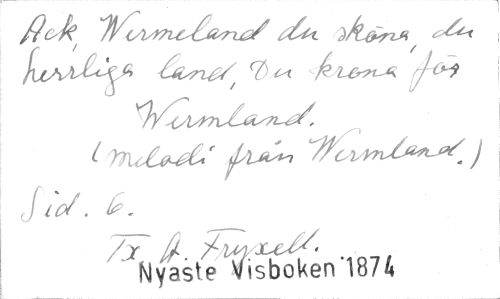 Ack, Wermeland du sköna, du
herrliga land, Du krona för
Wermland.
(melodi från Wermland.)
Sid. 6.
Tx A. Fryxell.
Nyaste Visboken 1874